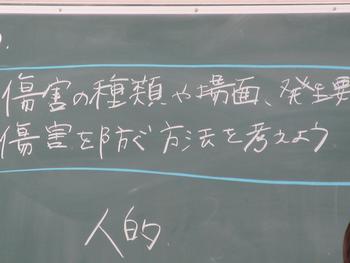 傷害の種類や場面、発生要
傷害を防ぐ方法を考えよう
人的